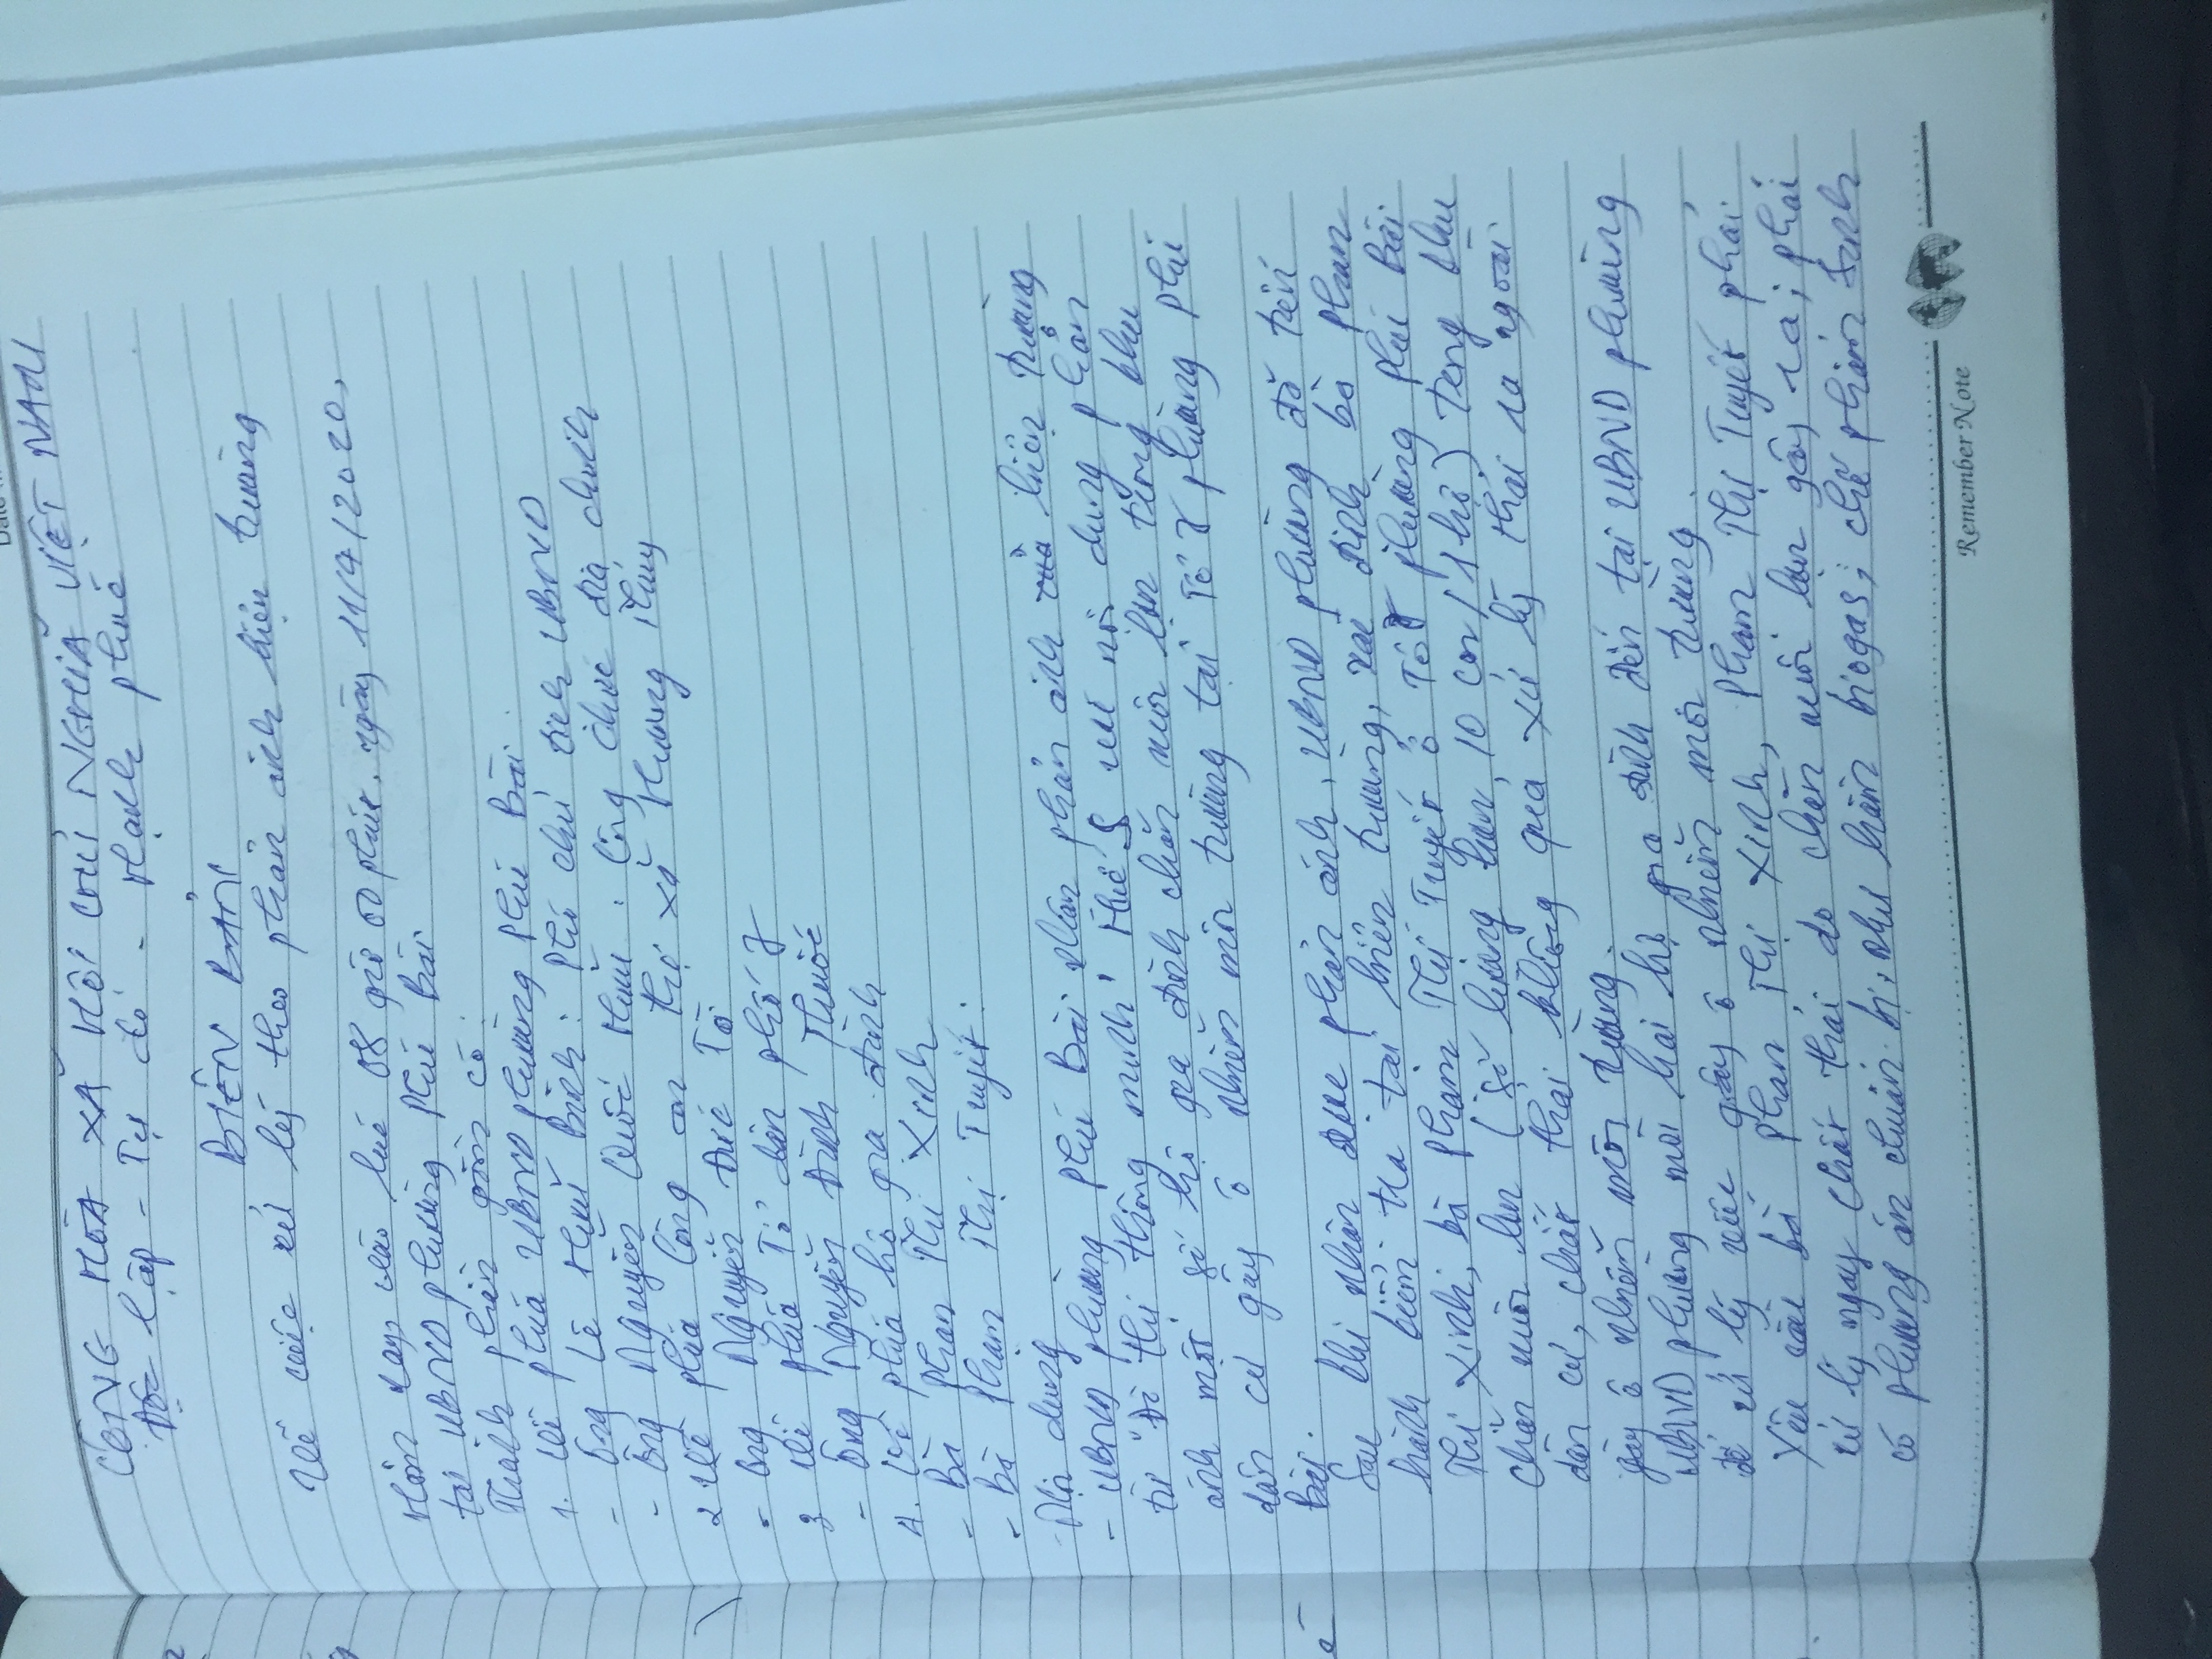 CỘNG HÒA XÃ HỘI CHỦ NGHĨA VIỆT NAM
Độc lập - Tự do - Hạnh phúc
BIÊN BẢN
Về việc xử lý theo phản ánh hiện trường
Hôm nay vào lúc 08 giờ 00 phút, ngày 11/4/2020,
tại UBND phường Phú Bài
Thành phần gồm có:
1. Về phía UBND phường Phú Bài.
- Ông Lê Hữu Bình: Phó chủ tịch UBND
- Ông Nguyễn Quốc Hữu: Công chức địa chính
2 Về phía Công an thị xã Hương Thủy
- Ông Nguyễn Đức Tài
3 Về phía Tổ dân phố 7
- Ông Nguyễn Đình Thuốc
4. Về phía hộ gia đình
- Bà Phan Thị Xinh
- Bà Phạm Thị Tuyết.
Nội dung
- UBND phường Phú Bài nhận phản ánh hiện trường
từ "Đô thị thông minh" Huế về nội dung phản
ánh một số hộ gia đình chăn nuôi lợn trong khu
dân cư gây ô nhiễm môi trường tại Tổ 7 phường Phú
Bài.
Sau khi nhận được phản ánh, UBND phường đã tiến
hành kiểm tra tại hiện trường, xác định bà Phan
Thị Xinh, bà Phạm Thị Tuyết ở Tổ 7 phường Phú Bài
chăn nuôi lợn (số lượng hơn 10 con/1 hộ) trong khu
dân cư, chất thải không qua xử lý thải ra ngoài
gây ô nhiễm môi trường.
UBND phường mời hai hộ gia đình đến tại UBND phường
để xử lý việc gây ô nhiễm môi trường.
Yêu cầu bà Phan Thị Xinh, Phạm Thị Tuyết phải
xử lý ngay chất thải do chăn nuôi lợn gây ra; phải
có phương án chuẩn bị như hầm biogas; chế phẩm sinh
Remember Note